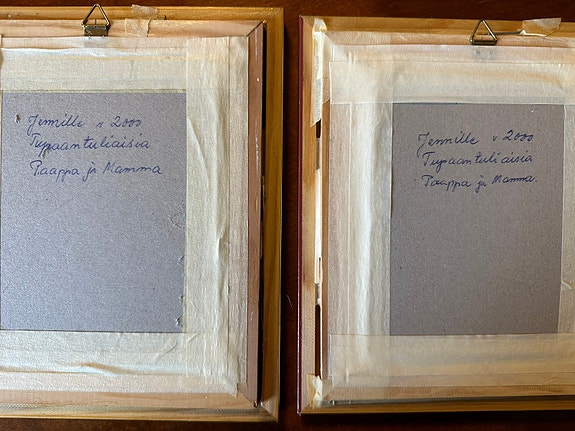 Jennille v 2000
Tupaantuliaisia
Paappa ja Mamma
Jennille v 2000
Tupaantuliaisia
Paappa ja Mamma.